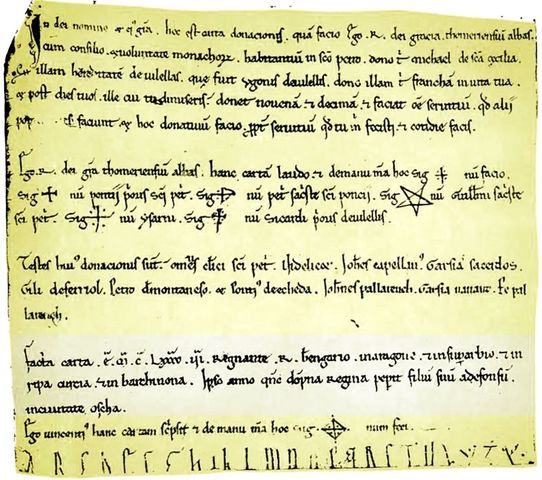 In dei nomine & ei' gr̃a. hoc est carta donacionis. quã facio Ego .R. dei gracia. thomeriensiũ abbas.
cum consilio. & voluntate monachoꝝ. habitantiũ in sc̃o petro. dono t̃ michael de sc̃a cecilia.
illam hereditatẽ de ulellas. que fuit ugonis deulellis. dono illam t̃ franchã in uita tua.
& post dies tuos. ille cui tu dimiseris donet nouenã & decimã. & faciat õe seruiciũ. qd alii
faciunt & hoc donatiuũ facio ꝓpt̃ seruitiũ qd tu m̃ fecisti. & cotidie facis.
Ego .R. dei gr̃a thomeriensiũ abbas. hanc cartã laudo & de manu m̃a hoc sig nũ facio.
Sig nũ poncii p̃oris sc̃i pet̃. Sig nũ pet̃ sac̃ste sc̃i poncii. Sig nũ Guillmi sac̃ste
sc̃i pet̃. Sig nũ ysarni. Sig nũ Sicardi p̃oris deulellis.
Testes hui' donacionis sũt. om̃s cl̃ici sc̃i pet̃. videlicet. Joh̃es capellan' Garsia sacerdos.
Gili deferriol. Petro demontaneso. & Ponti' de echeda. Johñes pallaruech. Garsia nauarr. Pe pal
laruech.
facta carta. ẽ. M̃. C̃. Lxxxv. iiij. Regnante .R. berengario. in aragone. & in supararbio. & in
ripa curcia. & in barchinona. Ipso anno quo dõpna regina peperit filiũ suũ adefonsũ.
in ciuitate oscha.
Ego uincenti' hanc cartam scripsit & de manu m̃a hoc sig num feci.